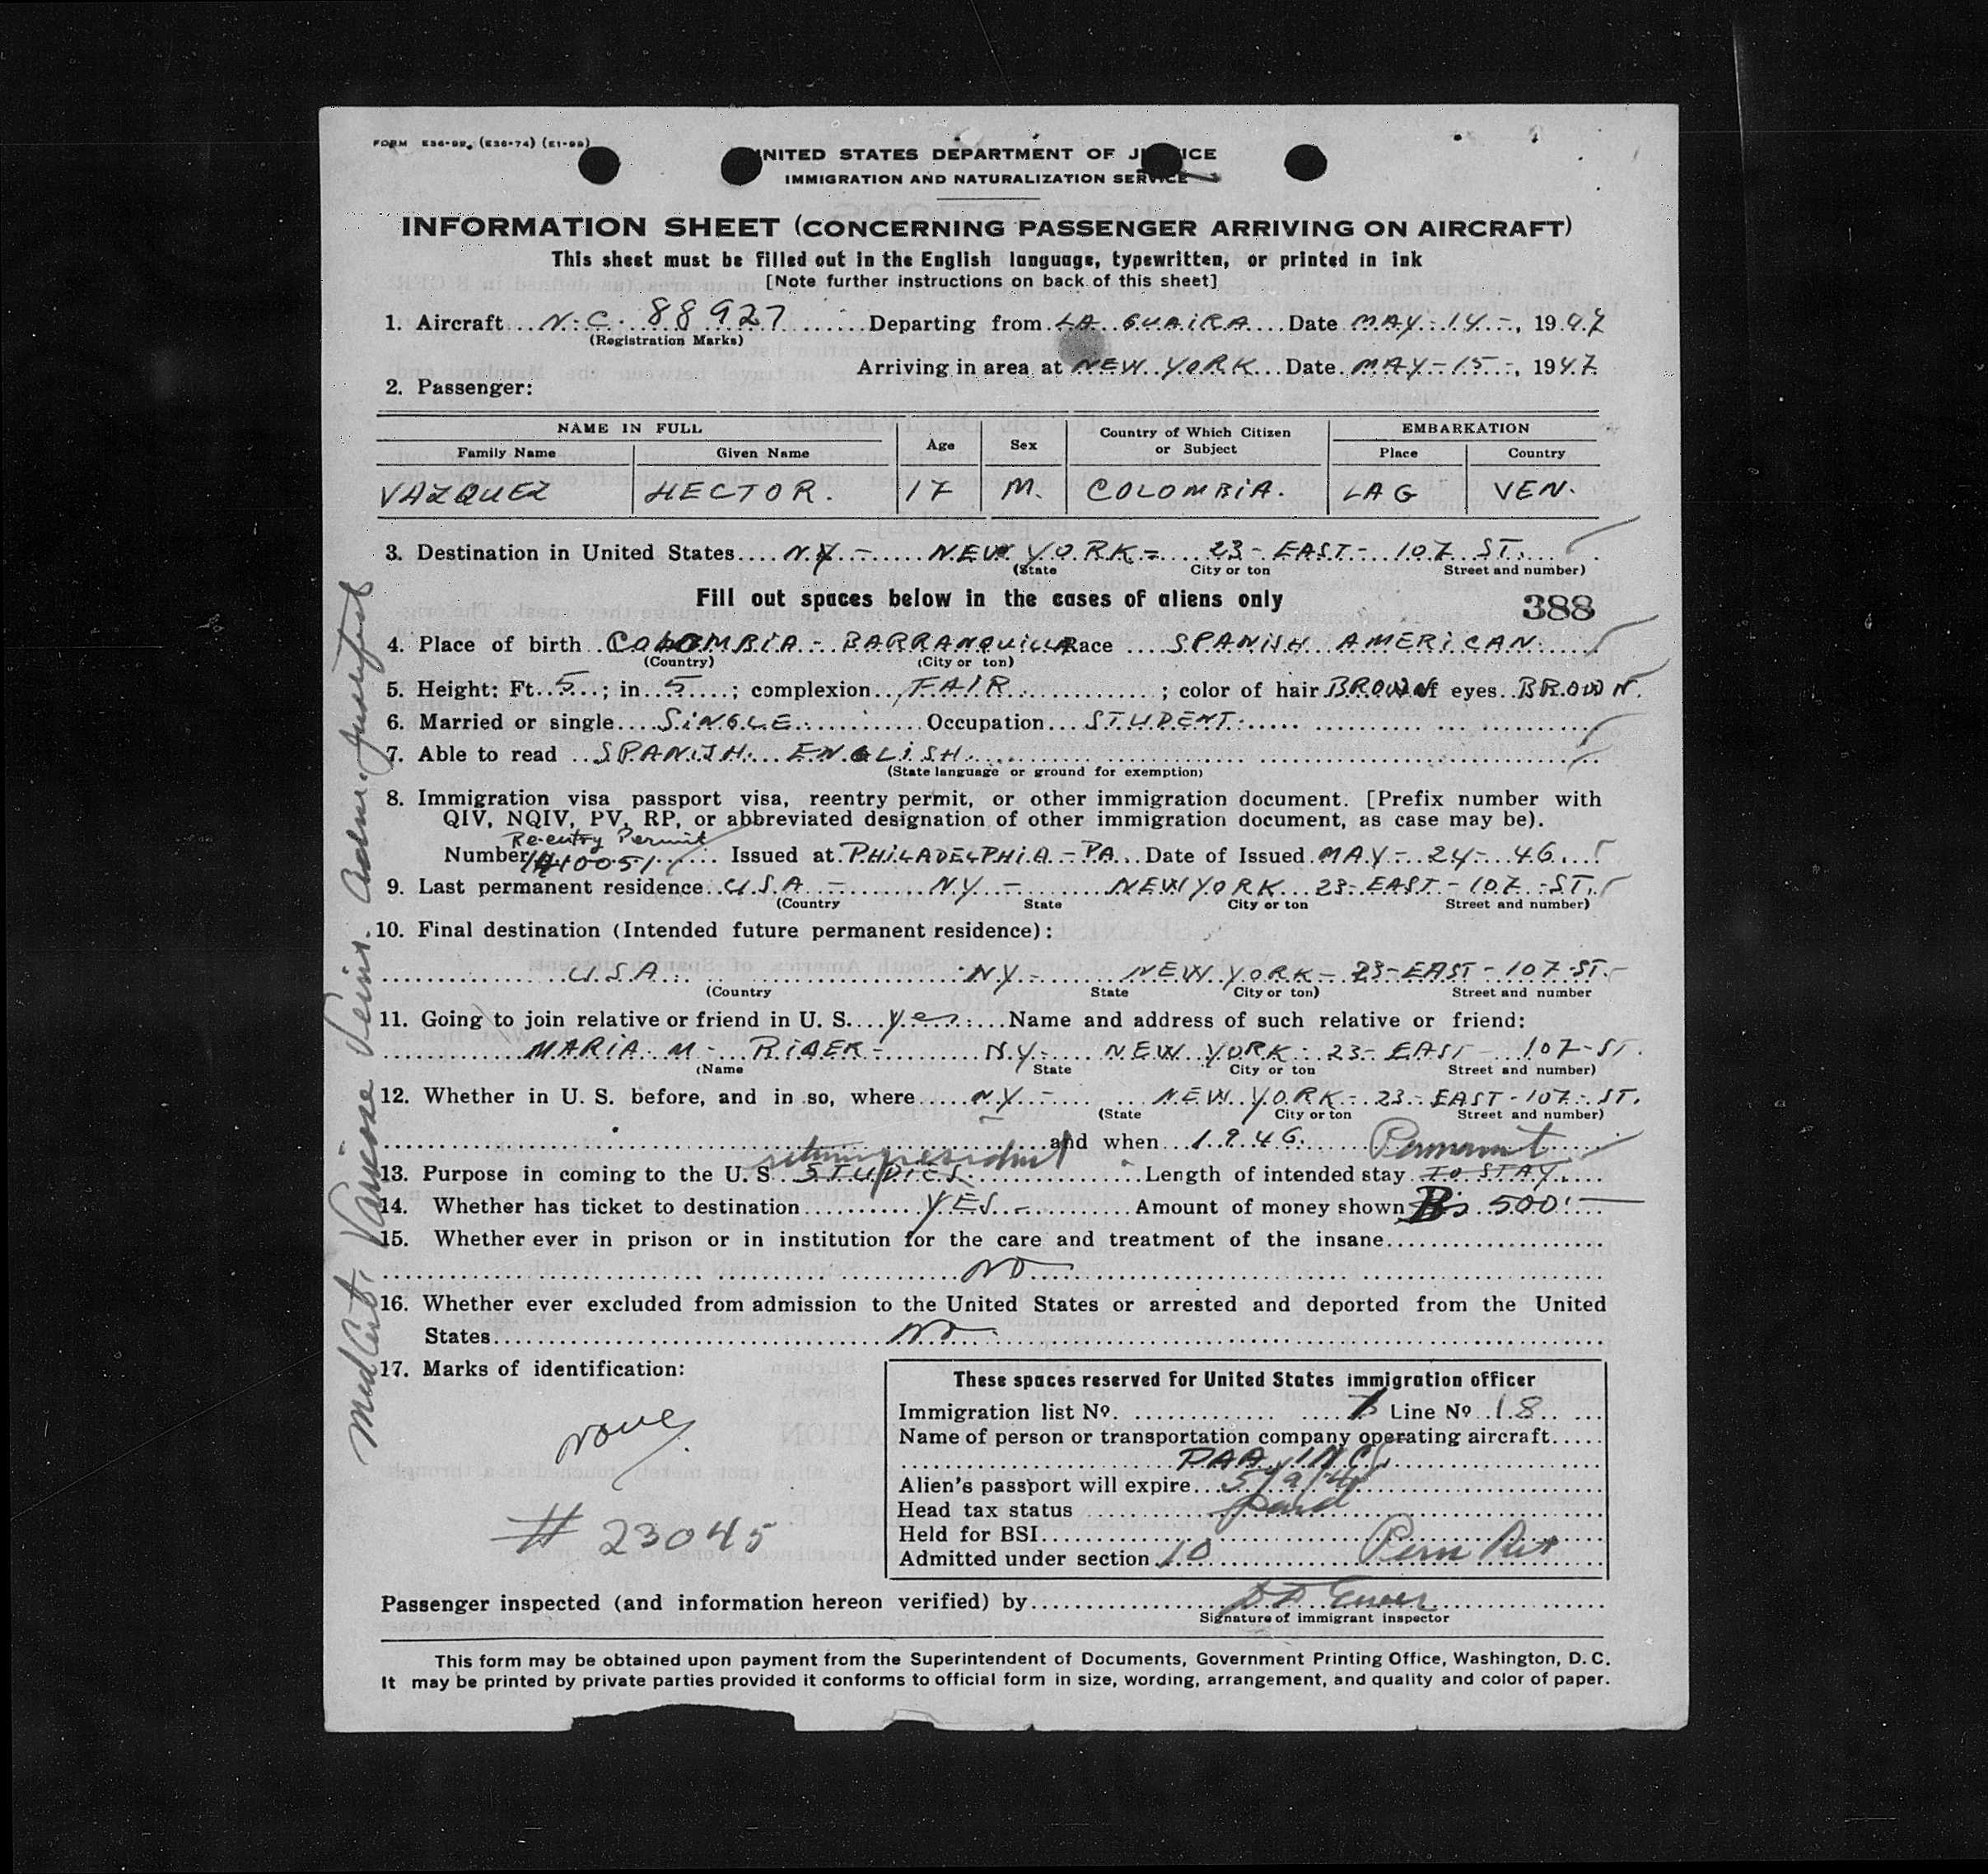 FORM E36-99, (E36-74) (E1-99)
UNITED STATES DEPARTMENT OF JUSTICE
IMMIGRATION AND NATURALIZATION SERVICE
INFORMATION SHEET (CONCERNING PASSENGER ARRIVING ON AIRCRAFT)
This sheet must be filled out in the English language, typewritten, or printed in ink
[Note further instructions on back of this sheet]
1. Aircraft N.C. 88927 Departing from LA GUAIRA Date MAY-14-, 1947
(Registration Marks)
Arriving in area at NEW YORK Date MAY-15-, 1947
2. Passenger:
NAME IN FULL Age Sex Country of Which Citizen or Subject EMBARKATION
Family Name Given Name Place Country
VAZQUEZ HECTOR. 17 M. COLOMBIA. LAG VEN.
3. Destination in United States N.Y - NEW YORK = 23-EAST-107 ST.
(State City or ton Street and number)
Fill out spaces below in the cases of aliens only
388
4. Place of birth COLOMBIA - BARRANQUILLA Race SPANISH AMERICAN
(Country) (City or ton)
5. Height: Ft. 5; in 5; complexion FAIR; color of hair BROWN of eyes BROWN.
6. Married or single SINGLE. Occupation STUDENT.
7. Able to read SPANISH. ENGLISH.
(State language or ground for exemption)
8. Immigration visa passport visa, reentry permit, or other immigration document. [Prefix number with
QIV, NQIV, PV, RP, or abbreviated designation of other immigration document, as case may be).
Re-entry Permit
Number Issued at PHILADELPHIA - PA. Date of Issued MAY - 24 - 46.
9. Last permanent residence U.S.A - N.Y - NEW YORK 23-EAST-107-ST.
(Country State City or ton Street and number)
10. Final destination (Intended future permanent residence):
U.S.A. N.Y - NEW YORK - 23-EAST-107-ST.
(Country State City or ton) Street and number
11. Going to join relative or friend in U. S. Yes Name and address of such relative or friend:
MARIA M - N.Y - NEW YORK - 23-EAST 107-ST.
(Name State City or ton Street and number)
12. Whether in U. S. before, and in so, where N.Y - NEW YORK - 23-EAST-107-ST.
(State City or ton Street and number)
and when 1946. Permanent
returning resident
13. Purpose in coming to the U. S. STUDIES. Length of intended stay TO STAY.
14. Whether has ticket to destination YES - Amount of money shown Bs 500.-
15. Whether ever in prison or in institution for the care and treatment of the insane
No
16. Whether ever excluded from admission to the United States or arrested and deported from the United
States No
17. Marks of identification:
none
# 23045
These spaces reserved for United States immigration officer
Immigration list No. Line No 18
Name of person or transportation company operating aircraft
PAA, INC.
Alien's passport will expire
Head tax status paid
Held for BSI
Admitted under section 10 Perm Res
Passenger inspected (and information hereon verified) by
Signature of immigrant inspector
This form may be obtained upon payment from the Superintendent of Documents, Government Printing Office, Washington, D. C.
It may be printed by private parties provided it conforms to official form in size, wording, arrangement, and quality and color of paper.
Med Cert. Varicose Veins. Adm. Manifest